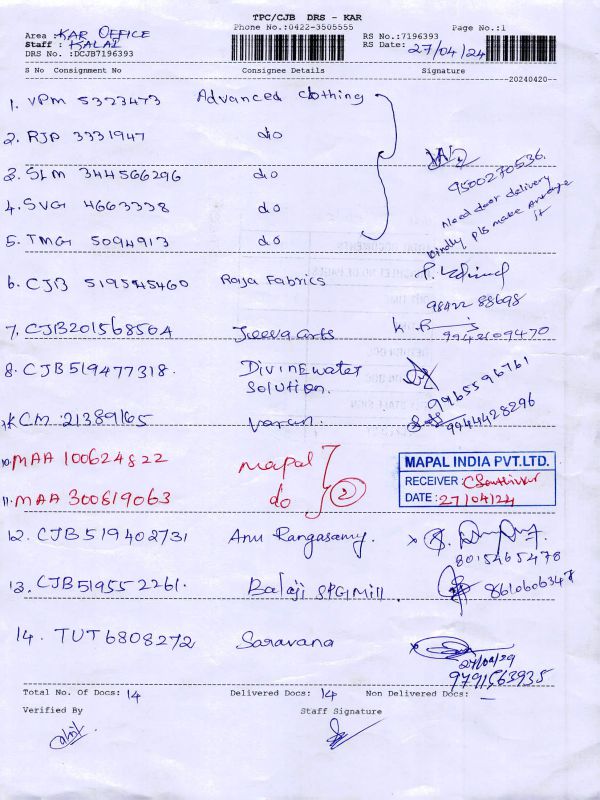 TPC/CJB DRS - KAR
Phone No.:0422-3505555
Page No.:1
Area : KAR OFFICE
Staff : KALAI
DRS No. :DCJB7196393
RS No.:7196393
RS Date: 27/04/24
S No Consignment No Consignee Details Signature
20240420--
1. VPM 5323473 Advanced clothing
2. RJP 3331947 do
3. SLM 344566296 do
9500270536.
4. SVG 4663338 do
Need door delivery
kindly pls make arrange it
5. TMG 5094913 do
6. CJB 519545460 Raja Fabrics
98422 88698
7. CJB201568504 Jeeva arts
9943109470
8. CJB519477318. Divinewater
Solution.
9965596761
KCM 21389165 Varun.
9944428296
10. MAA 100624822 mapal
11. MAA 300619063 do 2
MAPAL INDIA PVT.LTD.
RECEIVER:
DATE: 27/04/24
12. CJB519402731 Anu Rangasamy.
8015465478
13. CJB519552261. Balaji SPG Mill.
8610606347
14. TUT6808272 Saravana
27/04/24
9791563935
Total No. Of Docs: 14 Delivered Docs: 14 Non Delivered Docs: —
Verified By Staff Signature